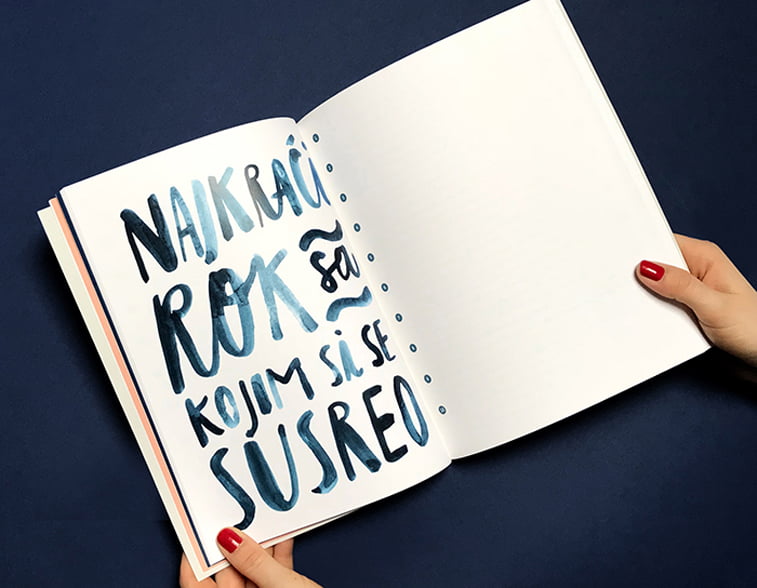 NAJKRAĆI
ROK sa
KOJIM SI SE
SUSREO